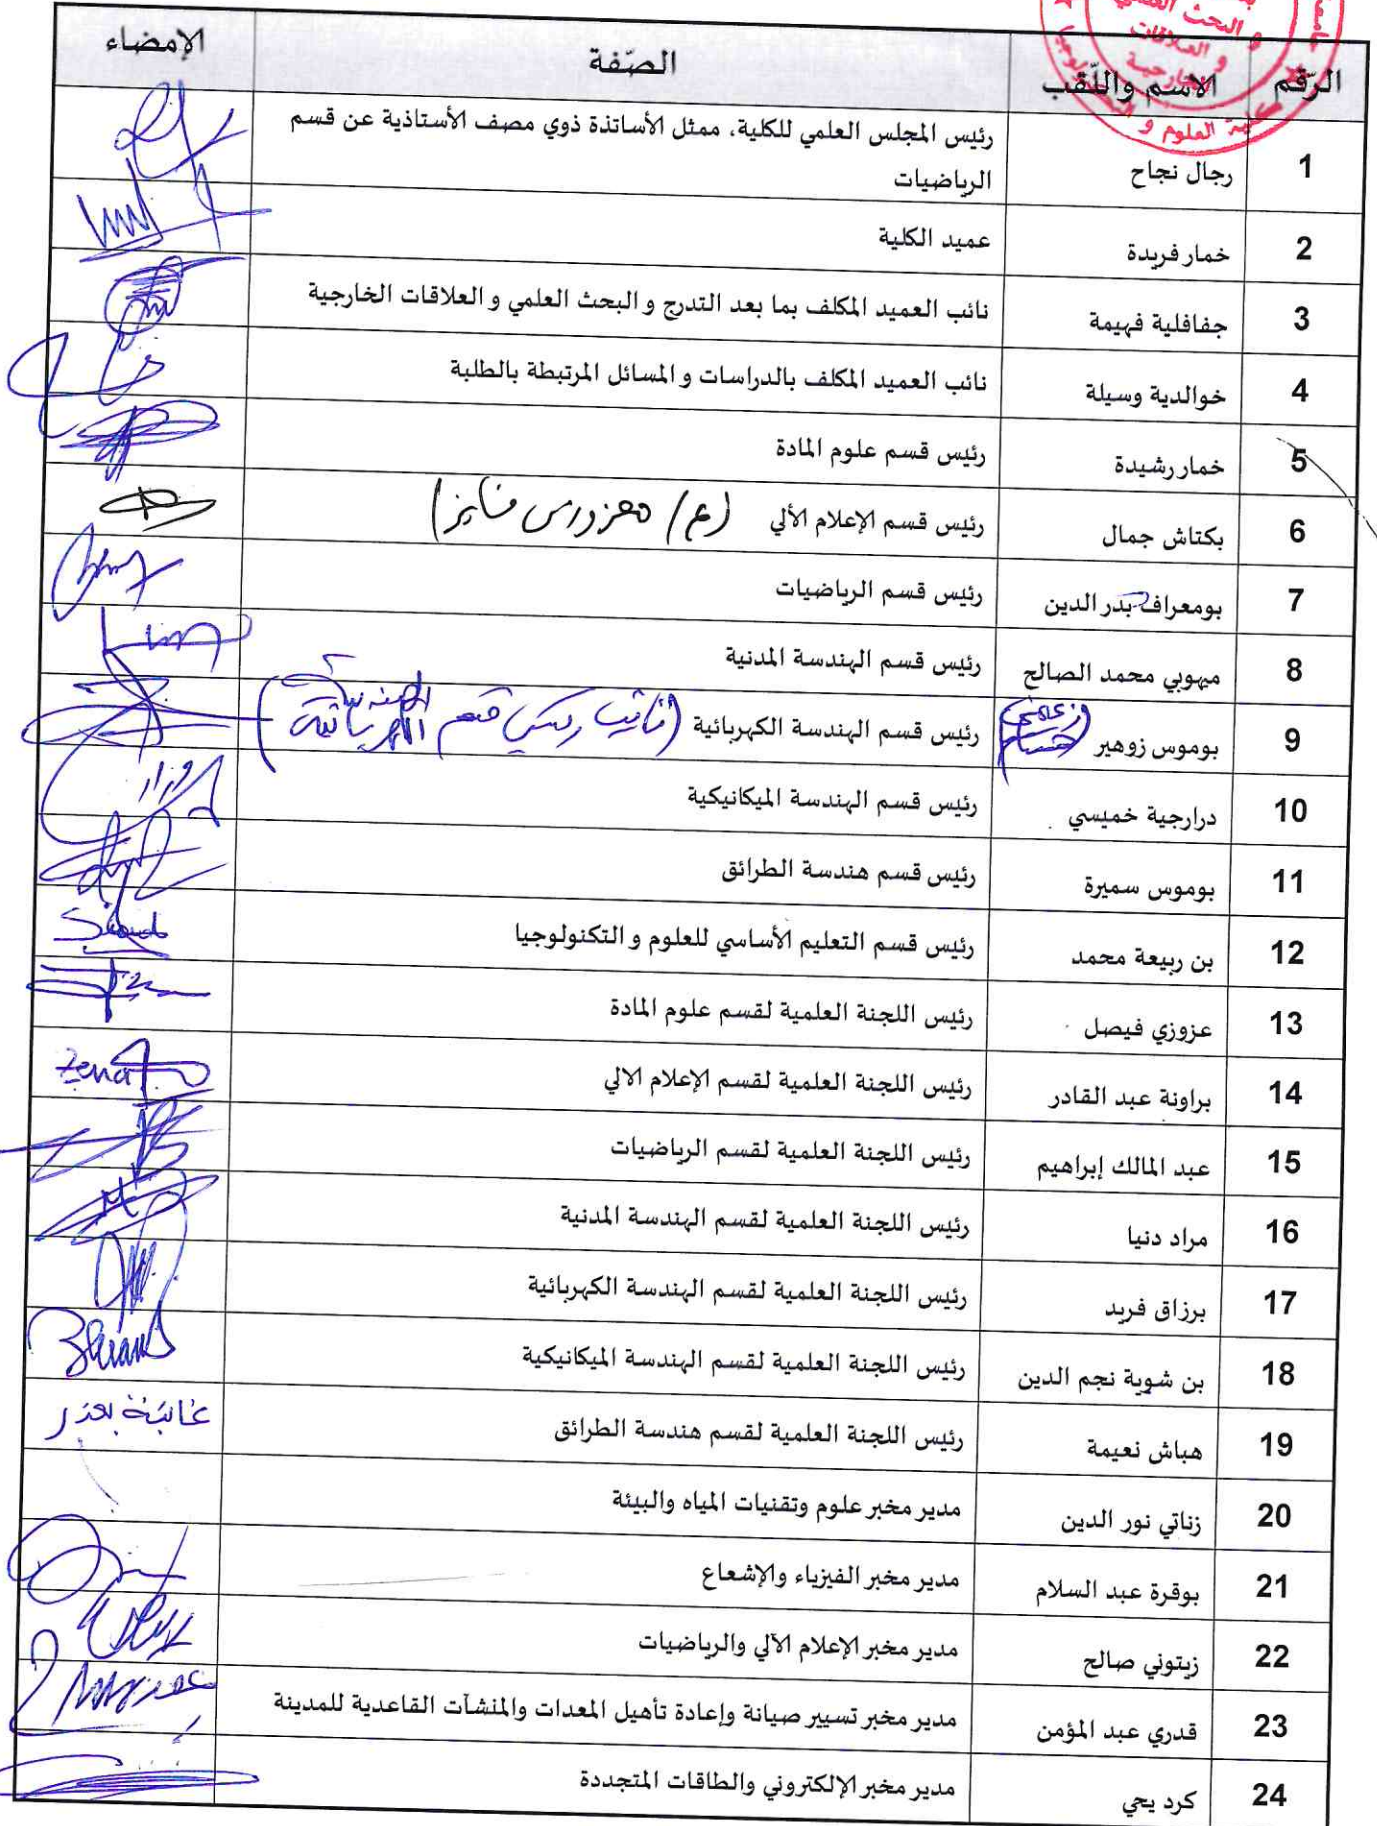 و البحث العلمي
و العلاقات
الخارجية
الرّقم الاسم واللّقب الصّفة الإمضاء
1 رجال نجاح رئيس المجلس العلمي للكلية، ممثل الأساتذة ذوي مصف الأستاذية عن قسم
الرياضيات
2 خمار فريدة عميد الكلية
3 جفافلية فهيمة نائب العميد المكلف بما بعد التدرج و البحث العلمي و العلاقات الخارجية
4 خوالدية وسيلة نائب العميد المكلف بالدراسات و المسائل المرتبطة بالطلبة
5 خمار رشيدة رئيس قسم علوم المادة
6 بكتاش جمال رئيس قسم الإعلام الألي (ع/
7 بومعراف بدر الدين رئيس قسم الرياضيات
8 ميهوبي محمد الصالح رئيس قسم الهندسة المدنية
9 بوموس زوهير رئيس قسم الهندسة الكهربائية (نائب رئيس قسم الهندسة الكهربائية)
10 درارجية خميسي رئيس قسم الهندسة الميكانيكية
11 بوموس سميرة رئيس قسم هندسة الطرائق
12 بن ربيعة محمد رئيس قسم التعليم الأساسي للعلوم و التكنولوجيا
13 عزوزي فيصل رئيس اللجنة العلمية لقسم علوم المادة
14 براونة عبد القادر رئيس اللجنة العلمية لقسم الإعلام الالي
15 عبد المالك إبراهيم رئيس اللجنة العلمية لقسم الرياضيات
16 مراد دنيا رئيس اللجنة العلمية لقسم الهندسة المدنية
17 برزاق فريد رئيس اللجنة العلمية لقسم الهندسة الكهربائية
18 بن شوية نجم الدين رئيس اللجنة العلمية لقسم الهندسة الميكانيكية
19 هباش نعيمة رئيس اللجنة العلمية لقسم هندسة الطرائق غائبة بعذر
20 زناتي نور الدين مدير مخبر علوم وتقنيات المياه والبيئة
21 بوقرة عبد السلام مدير مخبر الفيزياء والإشعاع
22 زيتوني صالح مدير مخبر الإعلام الآلي والرياضيات
23 قدري عبد المؤمن مدير مخبر تسيير صيانة وإعادة تأهيل المعدات والمنشآت القاعدية للمدينة
24 كرد يحي مدير مخبر الإلكتروني والطاقات المتجددة